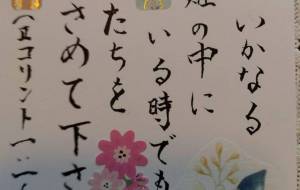 いかなる
の中に
いる時でも
たちを
さめて下さ
コリント一・一